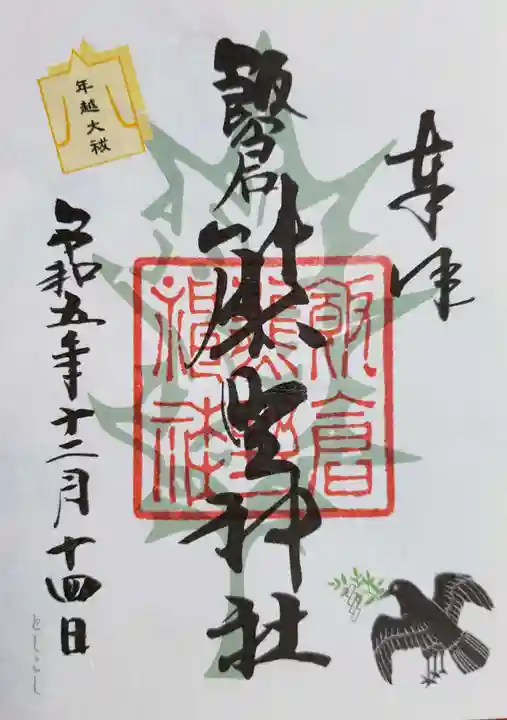 奉拝
飯倉熊野神社
飯倉
熊野
神社
年越大祓
令和五年十二月十四日
としこし